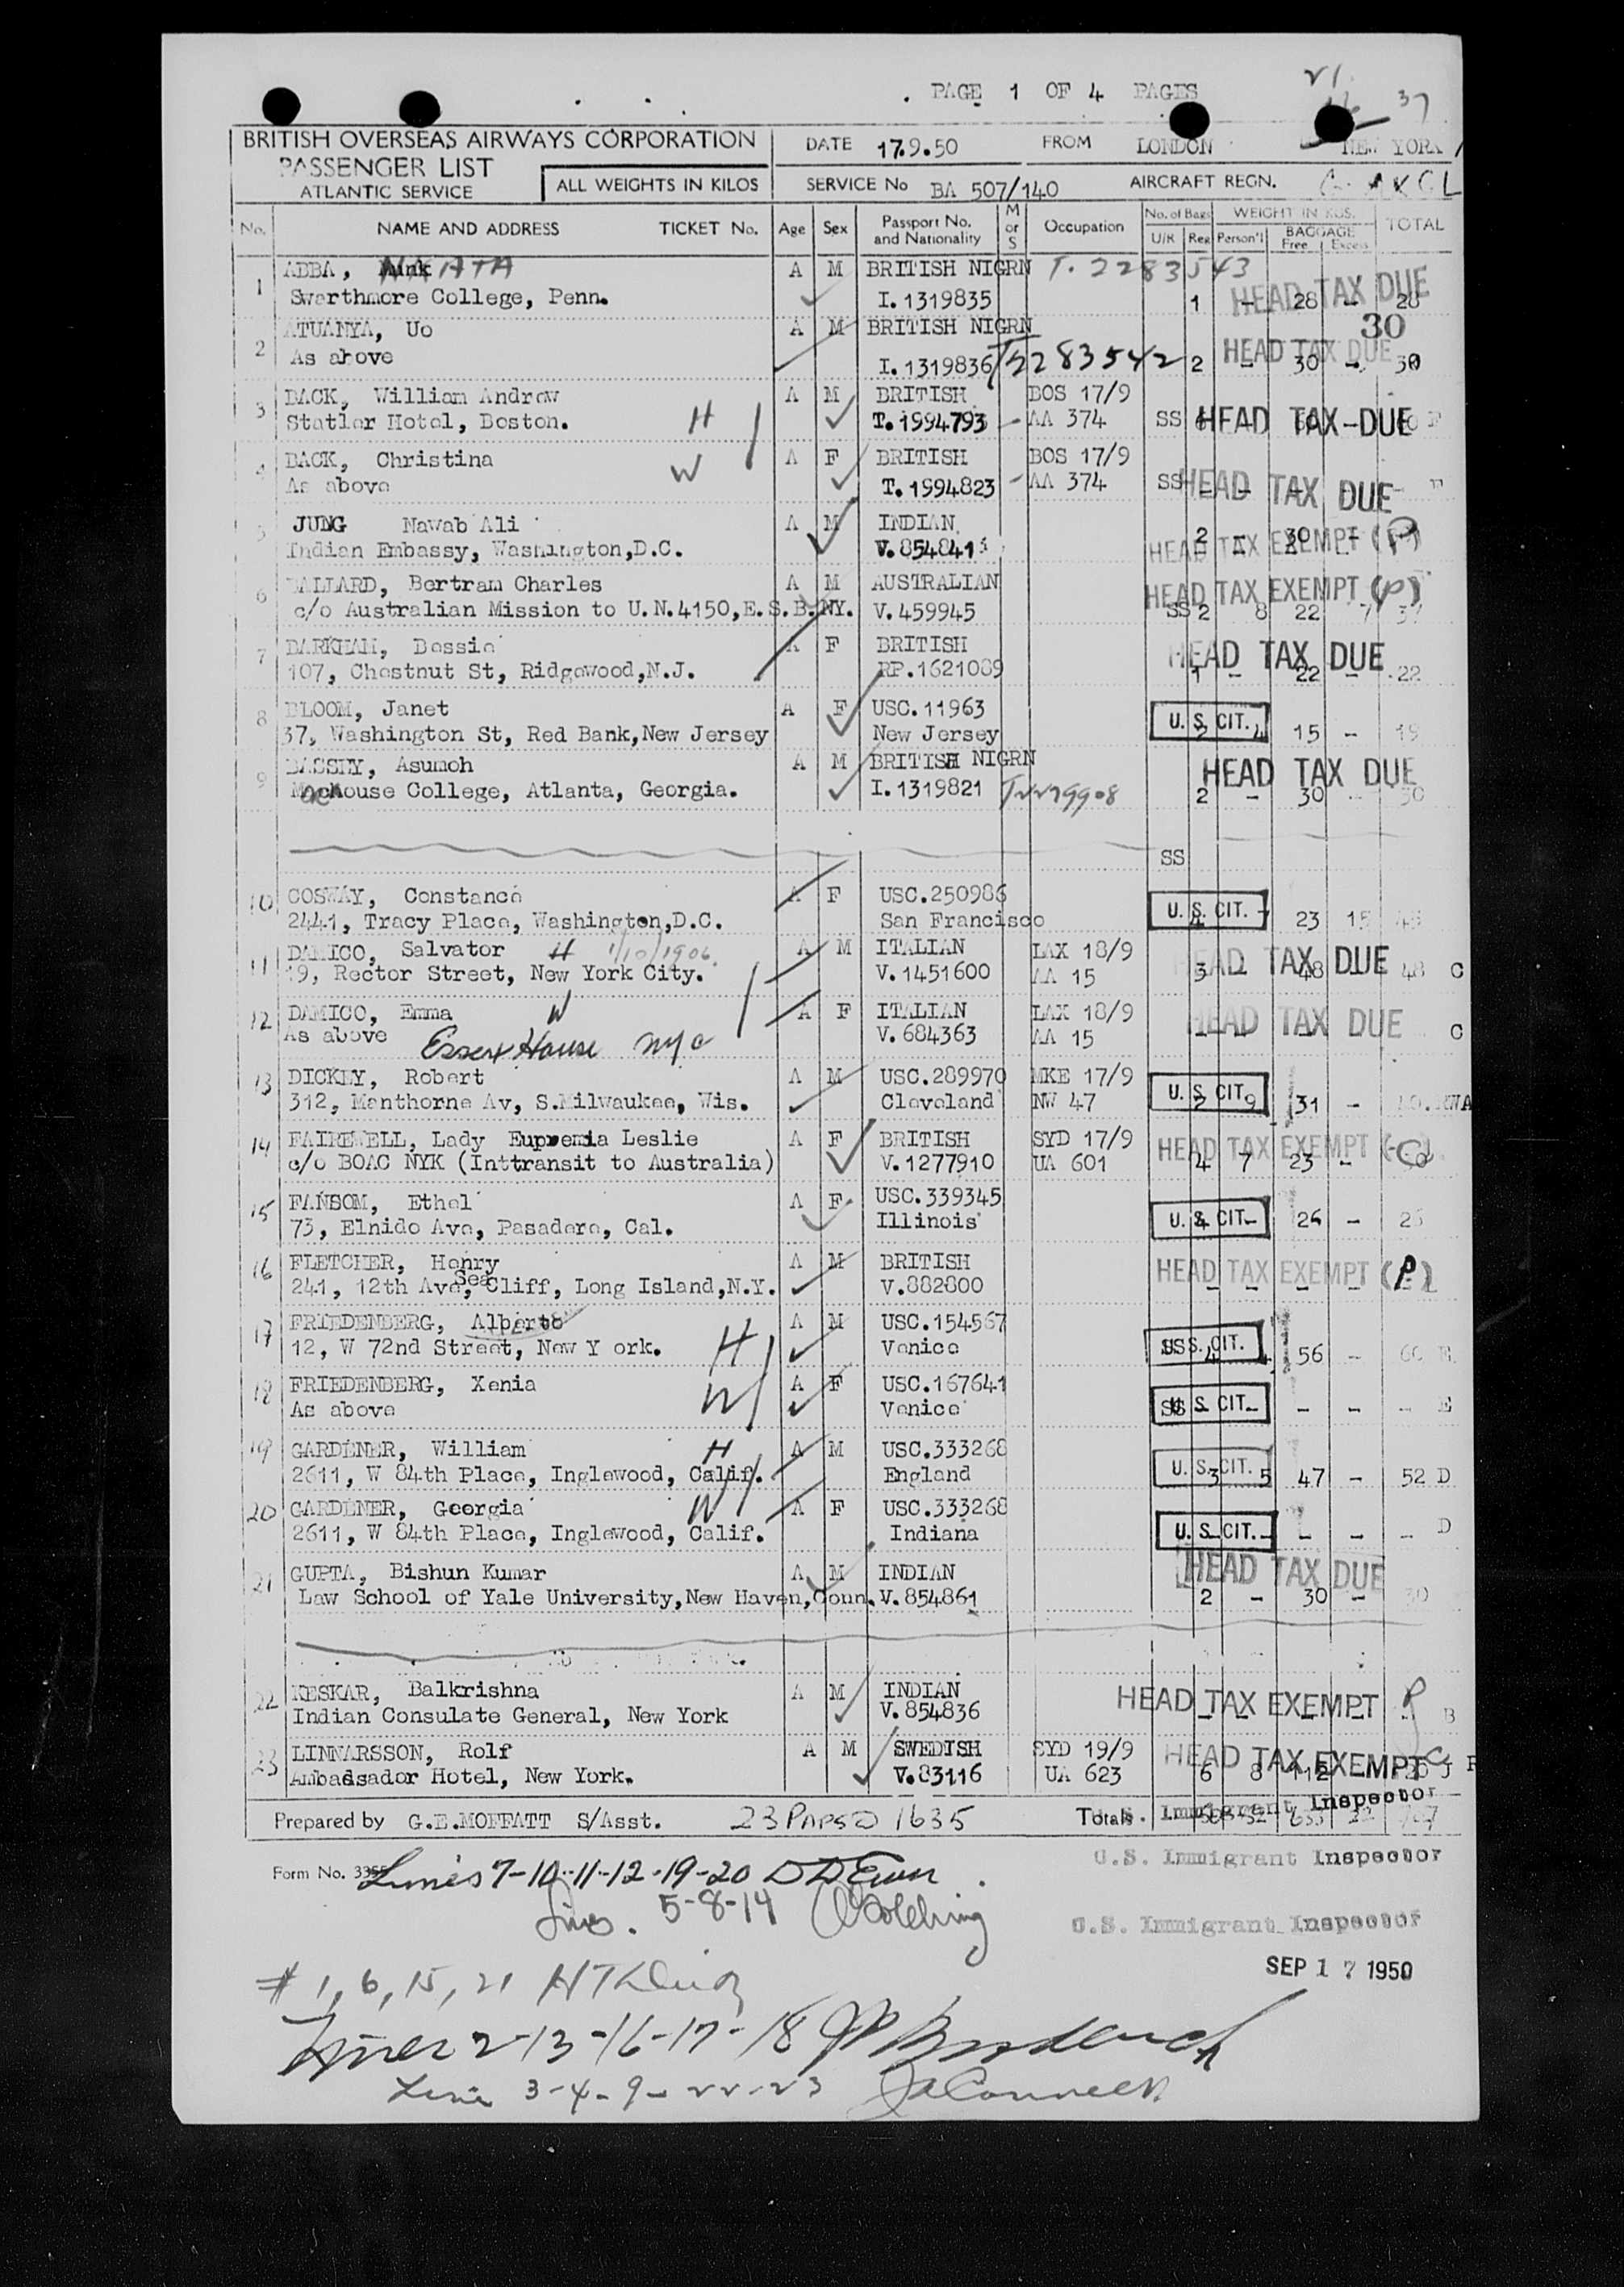 PAGE 1 OF 4 PAGES
37
BRITISH OVERSEAS AIRWAYS CORPORATION
PASSENGER LIST
ATLANTIC SERVICE
ALL WEIGHTS IN KILOS
DATE 17.9.50 FROM LONDON NEW YORK
SERVICE No BA 507/140 AIRCRAFT REGN.
No. NAME AND ADDRESS TICKET No. Age Sex Passport No. and Nationality M or S Occupation No. of Bags U/K Reg WEIGHT IN KGS. Person'l BAGGAGE Free Excess TOTAL
1 ABBA, A M BRITISH NIGRN T. 2283543 HEAD TAX DUE
Swarthmore College, Penn. I.1319835 1 - 28 - 28
2 ATUANYA, Uo A M BRITISH NIGRN 30
As above I.1319836 T2283542 2 - 30 - 30 HEAD TAX DUE
3 BACK, William Andrew A M BRITISH BOS 17/9
Statler Hotel, Boston. H T.1994793 AA 374 SS HEAD TAX DUE
4 BACK, Christina W A F BRITISH BOS 17/9
As above T.1994823 AA 374 SS HEAD TAX DUE
5 JUNG Nawab Ali A M INDIAN 2 - 30 -
Indian Embassy, Washington,D.C. V.854841 HEAD TAX EXEMPT (P)
6 BALLARD, Bertram Charles A M AUSTRALIAN HEAD TAX EXEMPT (P)
c/o Australian Mission to U.N.4150,E.S.B.NY. V.459945 SS 2 8 22 7 37
7 BARKHAM, Bessie A F BRITISH HEAD TAX DUE
107, Chestnut St, Ridgewood,N.J. RP.1621089 1 - 22 - 22
8 BLOOM, Janet A F USC.11963 U. S. CIT.
37, Washington St, Red Bank,New Jersey New Jersey 4 15 - 19
9 BASSEY, Asumoh A M BRITISH NIGRN HEAD TAX DUE
House College, Atlanta, Georgia. I.1319821 2 - 30 - 30
SS
10 COSWAY, Constance A F USC.250986 U. S. CIT.
2441, Tracy Place, Washington,D.C. San Francisco 4 7 23 15 45
11 DAMICO, Salvator H 1/10/1906 A M ITALIAN LAX 18/9 HEAD TAX DUE
19, Rector Street, New York City. V.1451600 AA 15 3 - 48 - 48 C
12 DAMICO, Emma W A F ITALIAN LAX 18/9 HEAD TAX DUE
As above Essex House NYC V.684363 AA 15 C
13 DICKEY, Robert A M USC.289970 MKE 17/9 U. S. CIT.
312, Manthorne Av, S.Milwaukee, Wis. Cleveland NW 47 2 9 31 - 40
14 FAIREWELL, Lady Eupremia Leslie A F BRITISH SYD 17/9 HEAD TAX EXEMPT (C)
c/o BOAC NYK (Inttransit to Australia) V.1277910 UA 601 4 7 23 - 30
15 FANSOM, Ethel A F USC.339345
73, Elnido Ave, Pasadera, Cal. Illinois U. S. CIT. 4 - 26 - 26
16 FLETCHER, Henry A M BRITISH HEAD TAX EXEMPT (P)
241, 12th Ave, Sea Cliff, Long Island,N.Y. V.882800 - - - -
17 FRIEDENBERG, Alberto A M USC.154567
12, W 72nd Street, New Y ork. H Venice SS U. S. CIT. 4 4 56 - 60 E
18 FRIEDENBERG, Xenia W A F USC.167641
As above Venice SS U. S. CIT. - - - - E
19 GARDENER, William H A M USC.333268
2611, W 84th Place, Inglewood, Calif. England U. S. CIT. 3 5 47 - 52 D
20 GARDENER, Georgia W A F USC.333268
2611, W 84th Place, Inglewood, Calif. Indiana U. S. CIT. - - - - D
21 GUPTA, Bishun Kumar A M INDIAN HEAD TAX DUE
Law School of Yale University,New Haven,Conn. V.854861 2 - 30 - 30
22 KESKAR, Balkrishna A M INDIAN HEAD TAX EXEMPT P
Indian Consulate General, New York V.854836 - - - - B
23 LINNARSSON, Rolf A M SWEDISH SYD 19/9 HEAD TAX EXEMPT C
Ambassador Hotel, New York. V.83116 UA 623 6 8 112
Prepared by G.E.MOFFATT S/Asst. 23 1635 Totals
U.S. Immigrant Inspector
Form No.
Lines 7-10-11-12-19-20
U.S. Immigrant Inspector
Lines. 5-8-14
U.S. Immigrant Inspector
SEP 17 1950
# 1, 6, 15, 21
Lines 2-13-16-17-18
Line 3-4-9-22-23